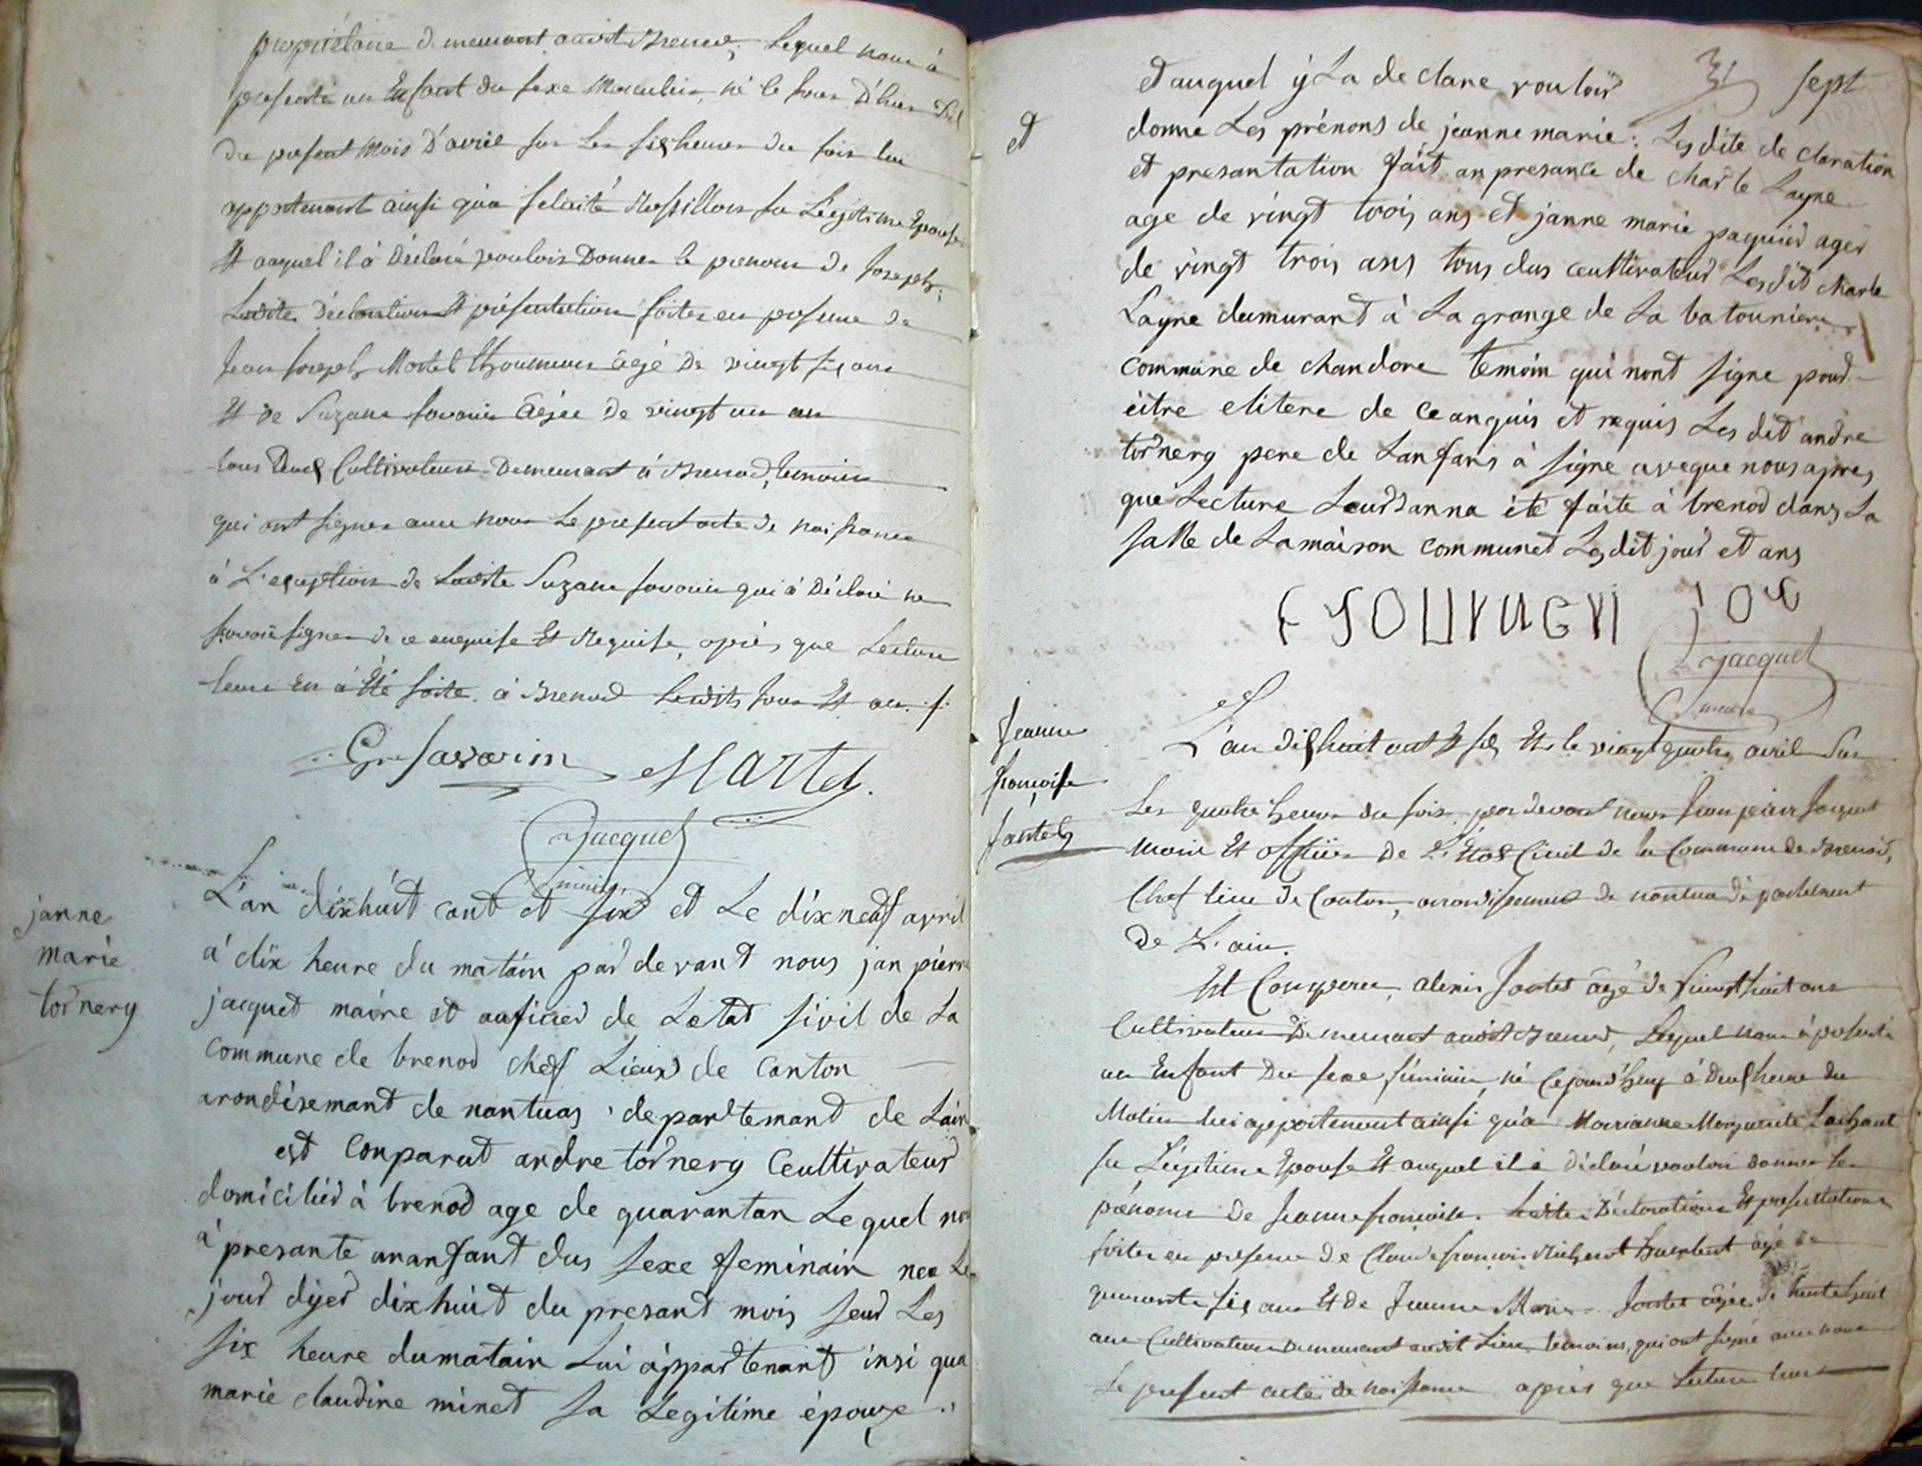 propriétaire demeurant audit Brenod, Lequel nous à
présenté un Enfant du sexe Masculin, né le jour D'hier
du présent Mois D'avril sur les six heures du soir lui
appartenant ainsi qu'a felicité sa Légitime Epouse
Et auquel il à Déclaré vouloir Donner le prénom de Joseph;
Lesdite Déclaration Et présentation faites en présence de
Jean Joseph Martel agé De vingt six ans
Et de Suzane Savarin âgée De vingt un an
tous Deux Cultivateurs Demeurant à Brenod, temoins
qui ont signer avec nous Le présent acte de naissance
à L'exception de Ladite Suzane Savarin qui à Déclaré ne
savoir signer de ce enquise Et Requise, après que Lecture
leur En à Eté faite à Brenod Lesdits Jour Et an
Savarin Martel
Jacquet
maire
janne
marie
tornery
L'an dixhuit cant et six et Le dixneuf avril
à dix heure du matain par devant nous jan pierre
jacquet maire et auficier de Letat sivil de La
commune de brenod chef Lieux de canton
arondisemant de nantuas departemant de Lain
est conparut andre tornery ceultivateur
domicilier à brenod age de quarantan Lequel nous
à presante ananfant dus sexe feminain nee Le
jour dyer dixhuit du presant mois seur Les
six heure dumatain Lui appartenant insi qua
marie claudine minet sa Legitime épouze
sept
et
et auquel ÿ La declare vouloir
donne Les prénons de jeanne marie : Lesdite declaration
et presantation fait an presance de charle Layne
age de vingt trois ans et janne marie paquier ager
de vingt trois ans tous dus ceultivateur Lesdit charle
Layne dumurant à La grange de La batouniere
commune de chandore temoin qui nont signe pour
eitre elitere de ceanquis et requis Les dit andre
tornery pere de Lanfans à signe aveque nous apres
que Lecture Leur anna été faite à brenod dans La
salle de Lamaison communet Lesdit jour et ans
Jacquet
maire
Jeanne
françoise
Jantet
L'an dixhuit cent Et six Et le vingt quatre avril sur
Les quatre heures du soir par devant nous Jean pierre Jacquet
Maire Et officier De L'Etat Civil de la Commune de Brenod,
Chef lieu De Canton, arrondissement de nantua département
De L'ain.
Est Comparu, alexis Jantet âgé de vingt huit ans
Cultivateur Demeurant audit Brenod, Lequel nous à présenté
un Enfant Du sexe féminin, né Cejourd'huy à deux heure du
Matin lui appartenant ainsi qu'a Marianne Marguerite
sa Légitime Epouse Et auquel il à Déclaré vouloir donner les
prénoms De Jeanne françoise. Lesdites Déclaration Et présentation
faites en présence De Claude françois âgé de
quarante six ans Et de Jeanne Marie Jantet âgée de trente huit
ans Cultivateurs Demeurant audit Lieu temoins, qui ont signé avec nous
Le présent acte de naissance après que Lecture leur